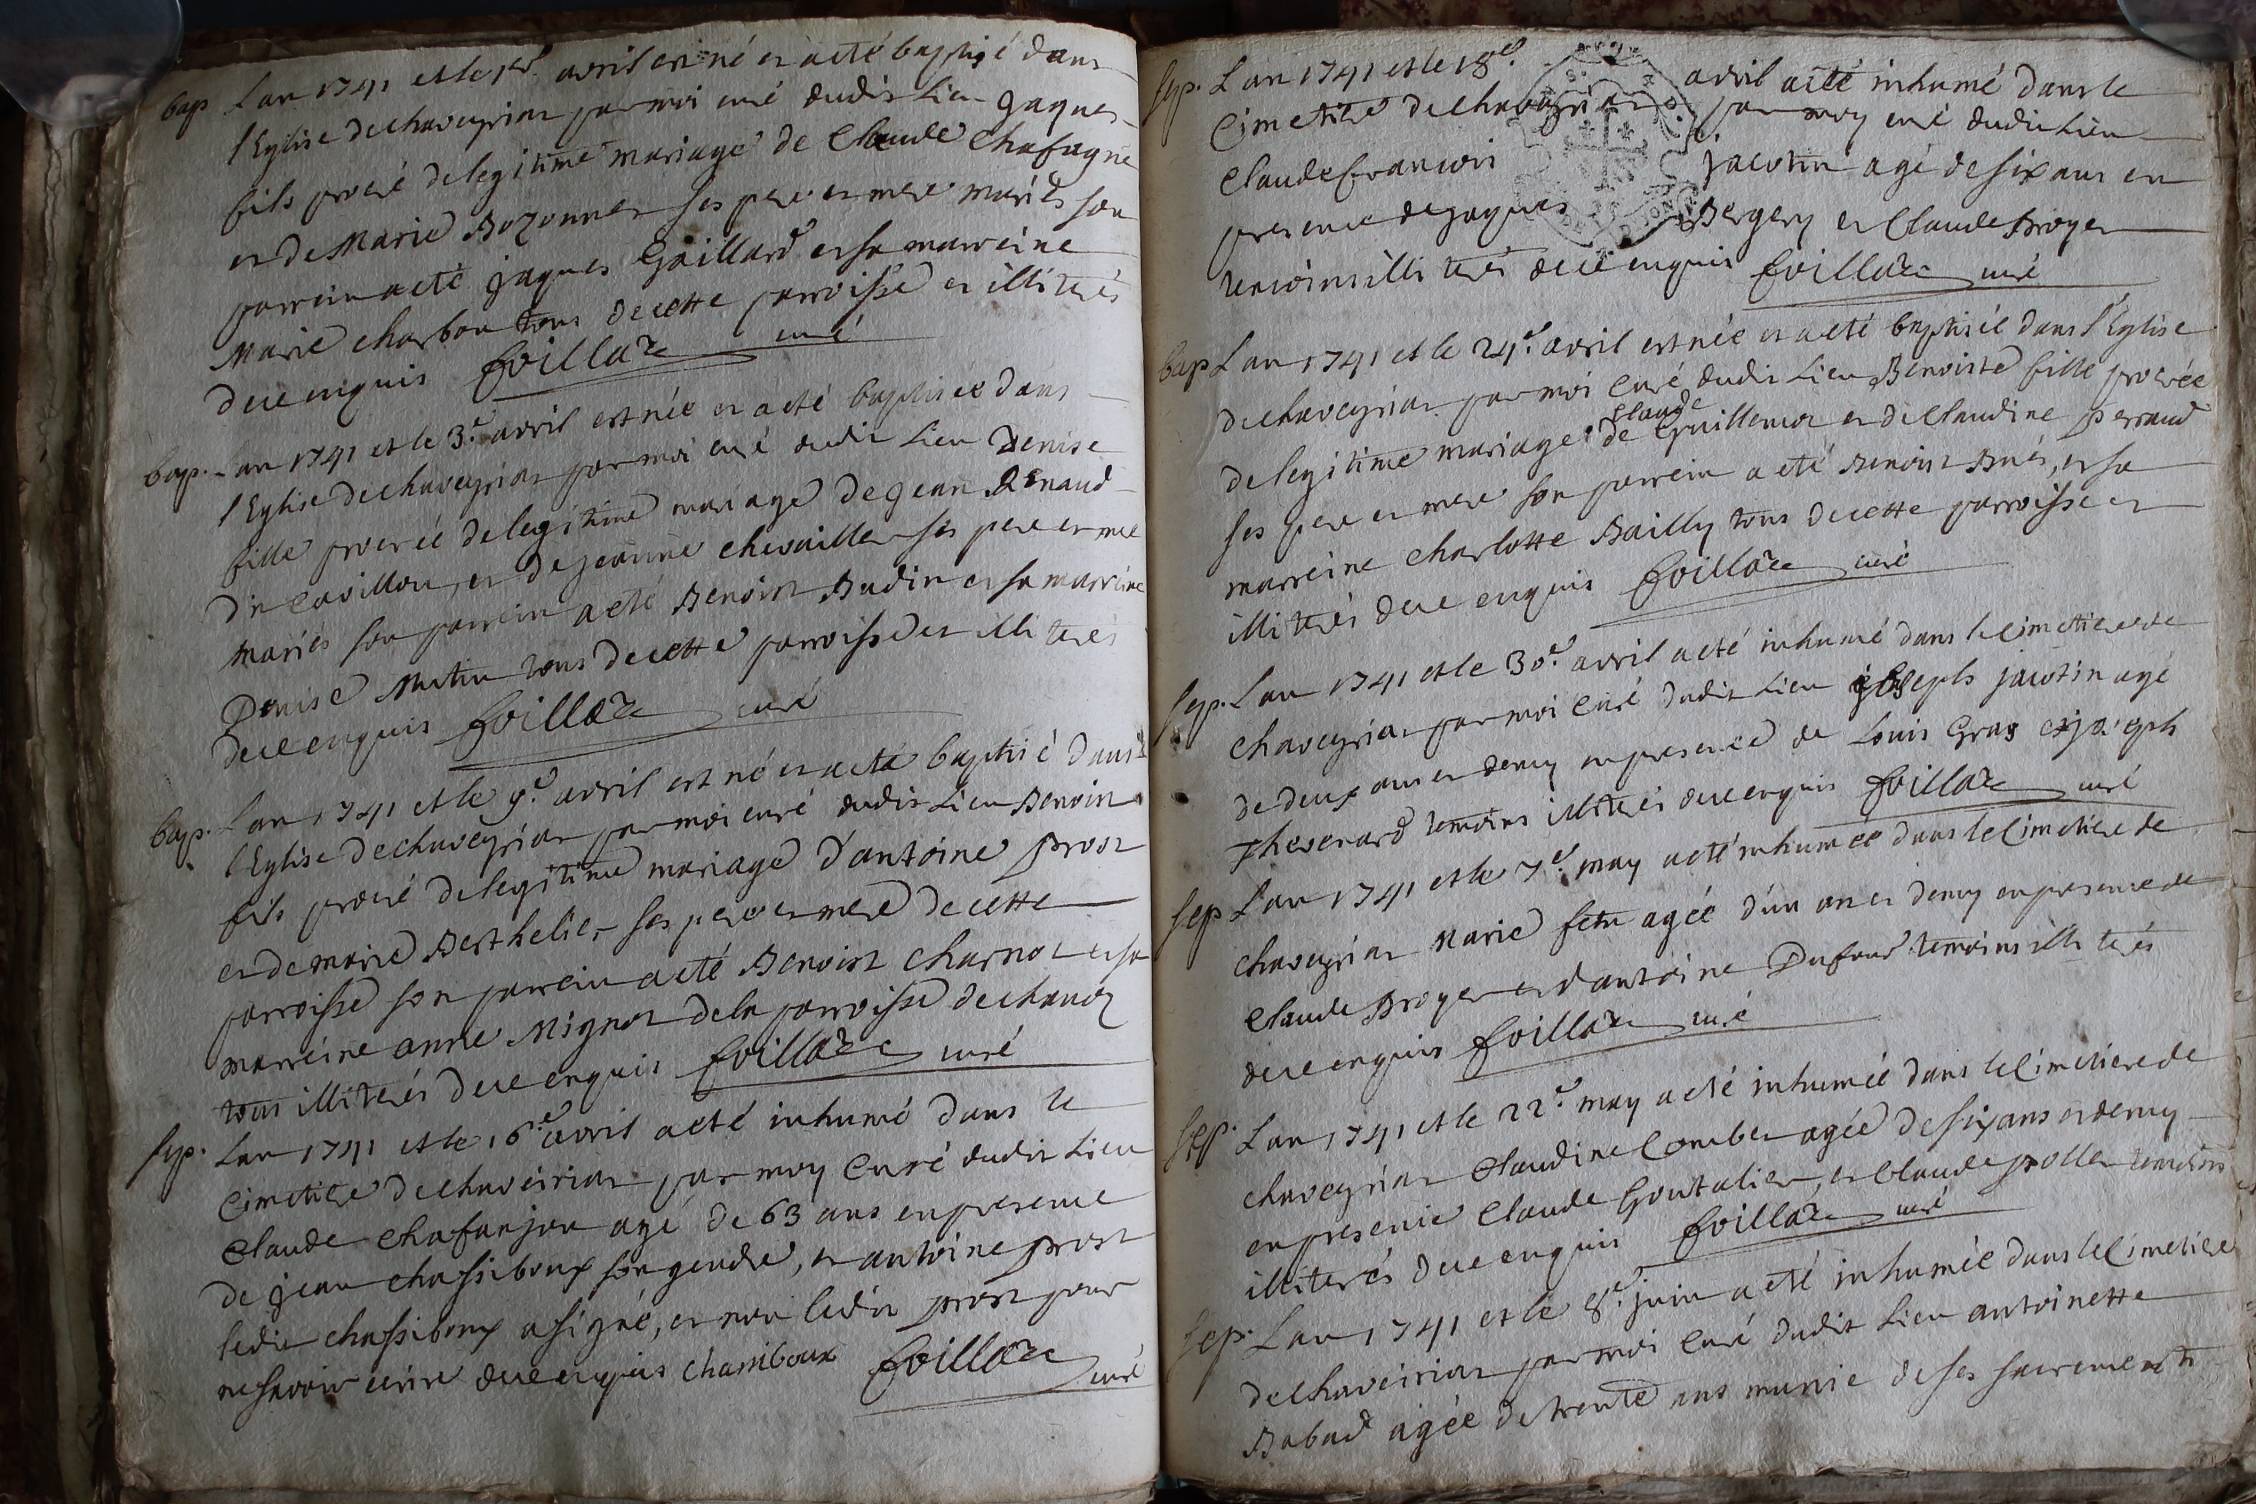 bap Lan 1741 et le 1er. avril est né et a eté baptisé dans
l'Eglise de chaveyriat par moi curé dudit Lieu Jaques
fils procréé de legitime mariage de Claude Chafagne
et de Marie Bozonnet ses pere et mere mariés son
parrein a eté jaques Gaillard et sa marreine
Marie charbon tous de cette parroisse et illiterés
de ce enquis foillare curé
bap. Lan 1741 et le 3.e avril est née et a eté baptisée dans
l'Eglise de chaveyriat par moi curé dudit Lieu Denise
fille procréé de legitime mariage de jean Renaud
dit Cavillon, et de jeanne chevaillier ses pere et mere
mariés son parrein a eté Benoist Budin et sa marreine
Denise Mutin tous de cette parroisse et illiterés
de ce enquis foillare curé
bap. Lan 1741 et le 9.e avril est né et a eté baptisé dans
l'Eglise de chaveyriat par moi curé dudit Lieu Benoist
fils procréé de legitime mariage d'antoine prost
et de marie Berthelier ses pere et mere de cette
parroisse son parrein a eté Benoist charnot et sa
marreine anne Mignot de la parroisse de chanoz
tous illiterés de ce enquis foillare curé
sep. Lan 1741 et le 16.e avril a eté inhumé dans le
Cimetiere de chaveiriat par moy Curé dudit Lieu
Claude chafanjon agé de 63 ans en presence
de jean chassiboux son gendre, et antoine prost
ledit chassiboux a signé, et non ledit prost pour
ne savoir ecrire de ce enquis chassiboux foillare curé
sep. Lan 1741 et le 18.e avril a eté inhumé dans le
Cimetiere de chaveyriat par moy curé dudit Lieu
Claude francois jacotin agé de six ans en
presence de jaques Bergery et Claude Broyer
temoins illiterés de ce enquis foillare curé
bap Lan 1741 et le 24.e avril est née et a eté baptisée dans l'Eglise
de chaveyriat par moi curé dudit Lieu Benoiste fille procréée
de legitime mariage de Claude Guillemot et de Claudine perraud
ses pere et mere son parrein a eté Benoist Brés, et sa
marreine charlotte Bailly tous de cette parroisse et
illiterés de ce enquis foillare curé
sep. Lan 1741 et le 30.e avril a eté inhumé dans le Cimetiere de
chaveyriat par moi curé dudit Lieu joseph jacotin agé
de deux ans et demy en presence de Louis Gras et joseph
Thevenard temoins illiterés de ce enquis foillare curé
sep Lan 1741 et le 7.e may a eté inhumée dans le Cimetiere de
chaveyriat Marie fetu agée d'un an et demy en presence de
Claude Broyer et d'antoine Dufour temoins illiterés
de ce enquis foillare curé
sep. Lan 1741 et le 22.e may a eté inhumée dans le Cimetiere de
chaveyriat Claudine Combet agée de six ans et demy
en presence Claude Goutalier, et Claude pollet temoins
illiterés de ce enquis foillare curé
sep. Lan 1741 et le 8.e juin a eté inhumée dans le Cimetiere
de chaveiriat par moi curé dudit Lieu antoinette
Babad agée de trente ans munie de ses sacrements